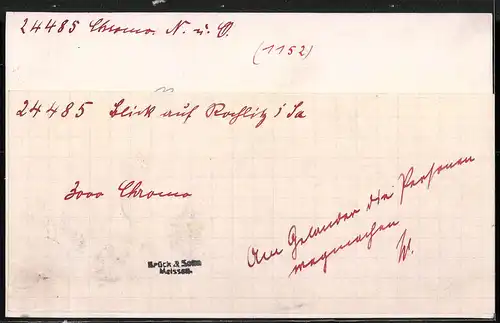 24485 Chromo N. u. O.
(1152)
24485 Blick auf Rochlitz i/Sa
3000 Chromo
Am Gelander die Personen
wegmachen
W.
Brück & Sohn
Meissen.